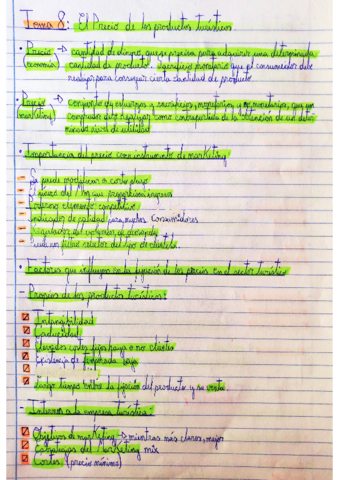 Tema 8: El Precio de los productos turísticos.
• Precio → cantidad de dinero que se precisa para adquirir una determinada
(economía) cantidad de producto. Sacrificio monetario que el consumidor debe
realizar para conseguir cierta cantidad de producto.
• Precio → conjunto de esfuerzos y sacrificios, monetarios y no monetarios, que un
(marketing) comprador debe realizar como contrapartida de la obtención de un deter
minado nivel de utilidad
• Importancia del precio como instrumento de marketing
- Se puede modificar a corto plazo
- El único del Mm que proporciona ingresos
- Poderoso elemento competitivo
- Indicador de calidad para muchos consumidores
- Regulador del volumen de demanda
- filtro selector del tipo de clientela.
• Factores que influyen en la fijación de los precios en el sector turístico
- Propios de los productos turísticos:
Intangibilidad
Caducidad
costes fijos haya o no clientes
Existencia de temporada baja
Largo tiempo entre la fijación del producto y su venta
- Internos a la empresa turística:
Objetivos de marketing → mientras más claros, mejor
Estrategias del Marketing mix
Costes (precio mínimo)